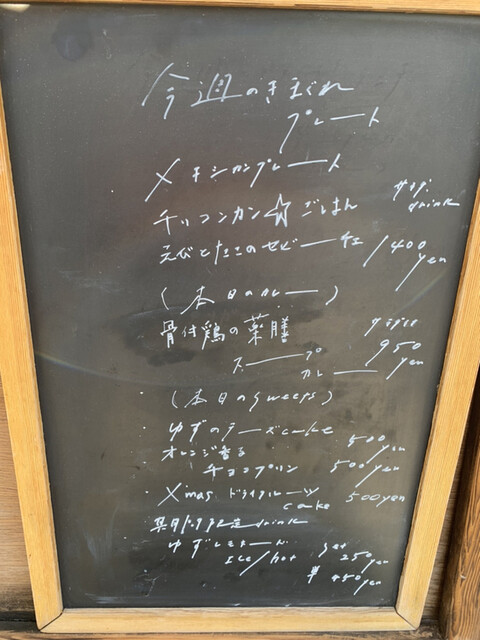 今週のきまぐれ
プレート
メキシカンプレート
チリコンカン☆ごはん サラダ drink
えびとたこのセビーチェ 1400 yen
(本日のカレー)
骨付鶏の薬膳 サラダ付
スープ 950 yen
カレー
(本日のsweets)
・ゆずのチーズcake 500 yen
オレンジ香る
チョコプリン 500 yen
・X'mas ドライフルーツ 500yen
cake
drink
ゆずレモネード set 250 yen
Ice/hot 単 450 yen